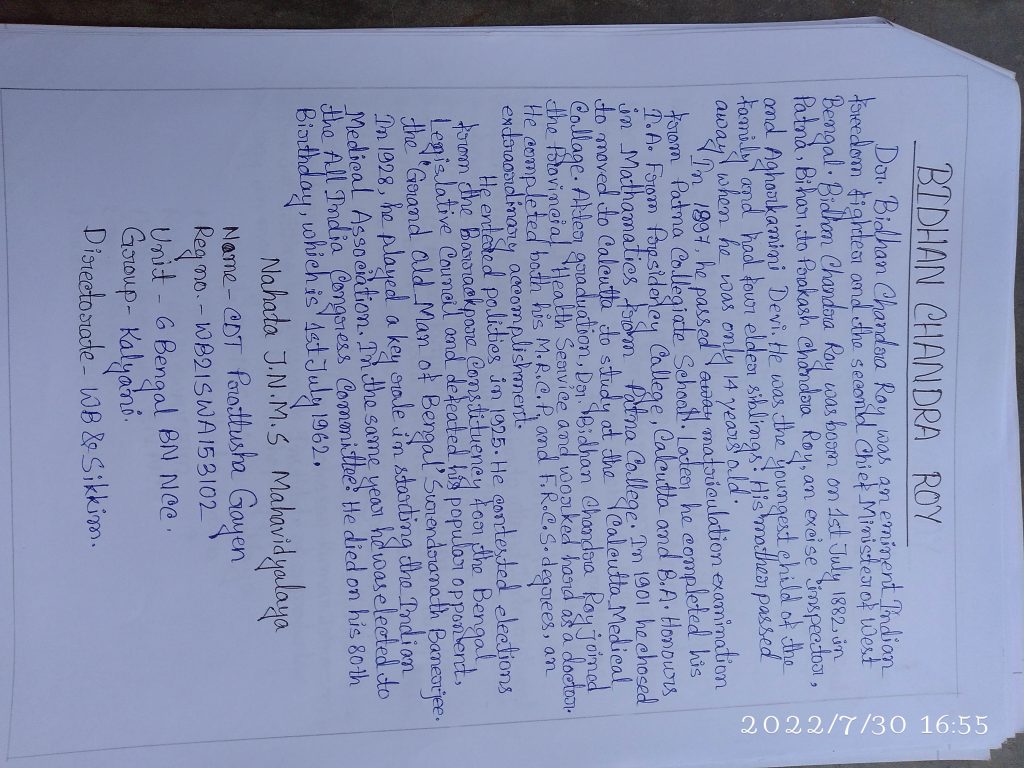 BIDHAN CHANDRA ROY
Dr. Bidhan Chandra Roy was an eminent Indian
freedom fighter and the second Chief Minister of West
Bengal. Bidhan Chandra Roy was born on 1st July 1882, in
Patna, Bihar, to Prakash Chandra Roy, an excise inspector,
and Aghorkamini Devi. He was the youngest child of the
family and had four elder siblings. His mother passed
away when he was only 14 years old.
In 1897, he passed matriculation examination
from Patna Collegiate School. Later he completed his
I.A. From Presidency College, Calcutta and B.A. Honours
in Mathamatics from Patna College. In 1901 he chosed
to moved to Calcutta to study at the Calcutta Medical
Collage. After graduation, Dr. Bidhan Chandra Roy joined
the Provincial Health Service and worked hard as a doctor.
He completed both his M.R.C.P and F.R.C.S. degrees, an
extraordinary accomplishment.
He entered politics in 1925. He contested elections
from the Barrackpore Constituency for the Bengal
Legislative Council and defeated his popular opponent,
the "Grand Old Man of Bengal", Surendranath Banerjee.
In 1928, he played a key role in starting the Indian
Medical Association. In the same year he was elected to
the All India Congress Committee. He died on his 80th
Birthday, which is 1st July 1962.
Nahata J.N.M.S Mahavidyalaya
Name - CDT Prottusha Gayen
Reg no. - WB21SWA153102
Unit - 6 Bengal BN Ncc.
Group - Kalyani.
Directorate - WB & Sikkim.
2022/7/30 16:55